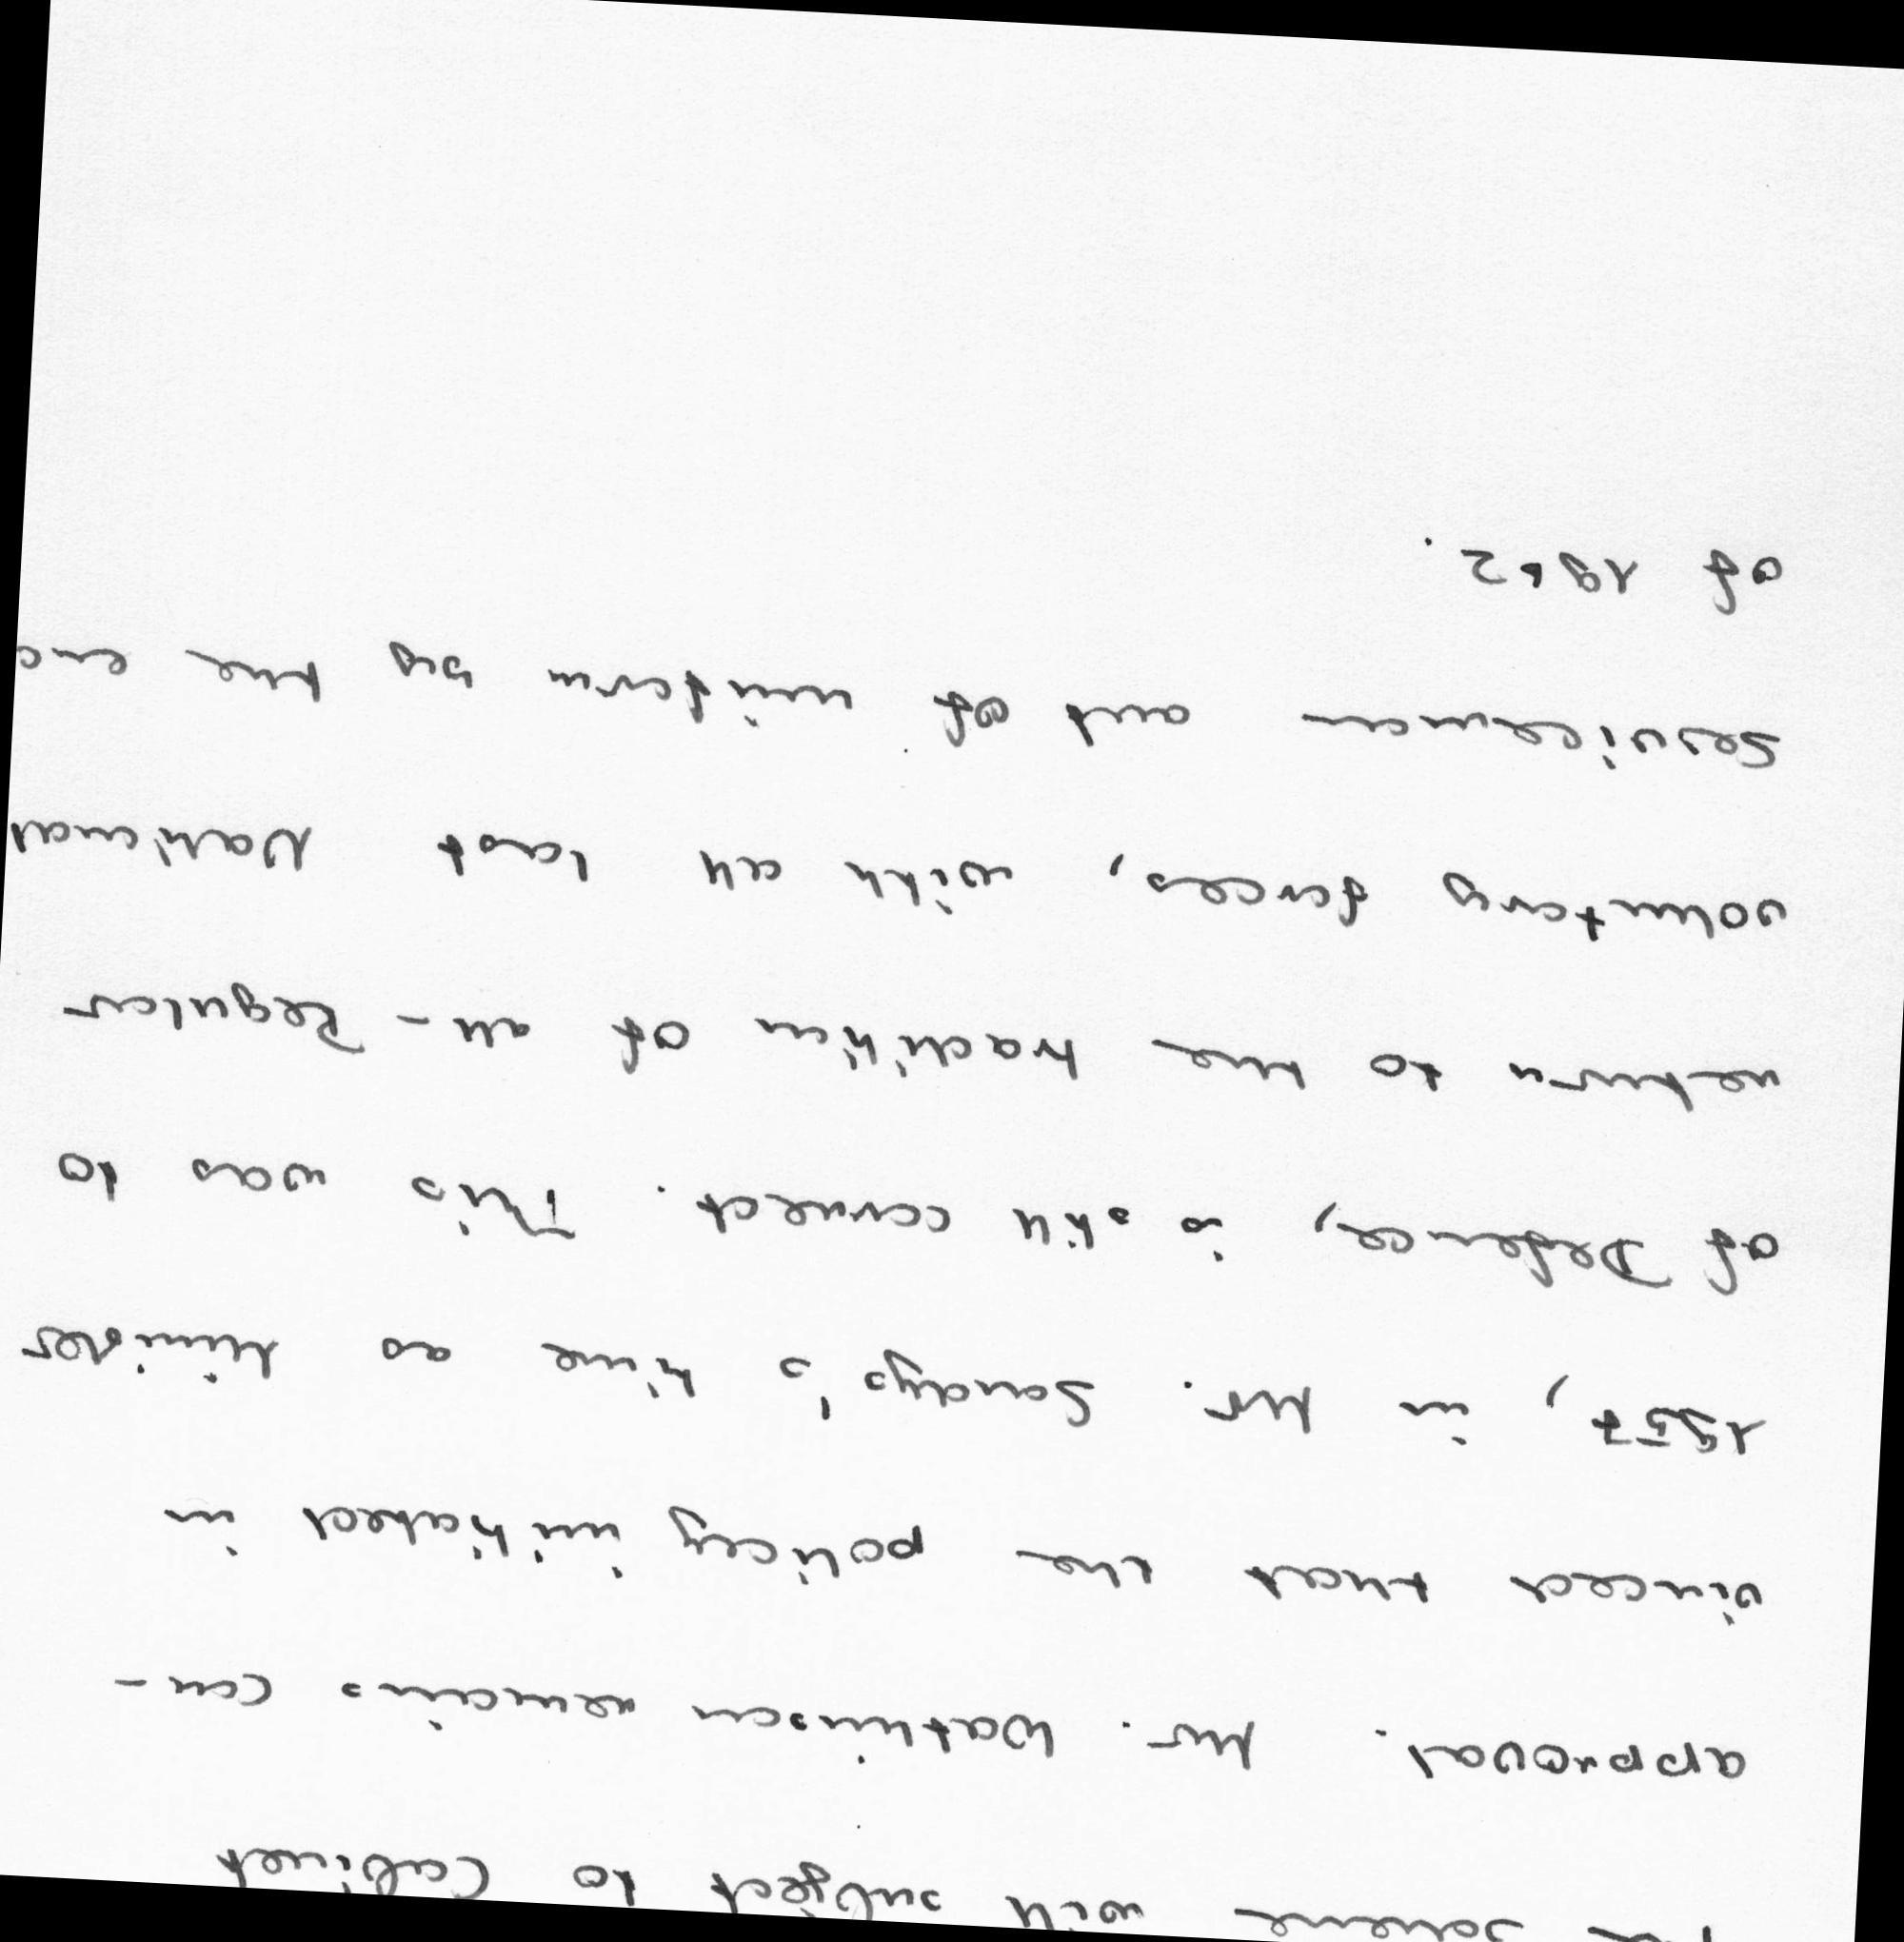 scheme will subject to Cabinet
approval. Mr. Watkinson remains con-
vinced that the policy initiated in
1957, in Mr. Sandys's time as Minister
of Defence, is still correct. This was to
return to the tradition of all-Regular
voluntary forces, with all last National
Servicemen out of uniform by the end
of 1962.